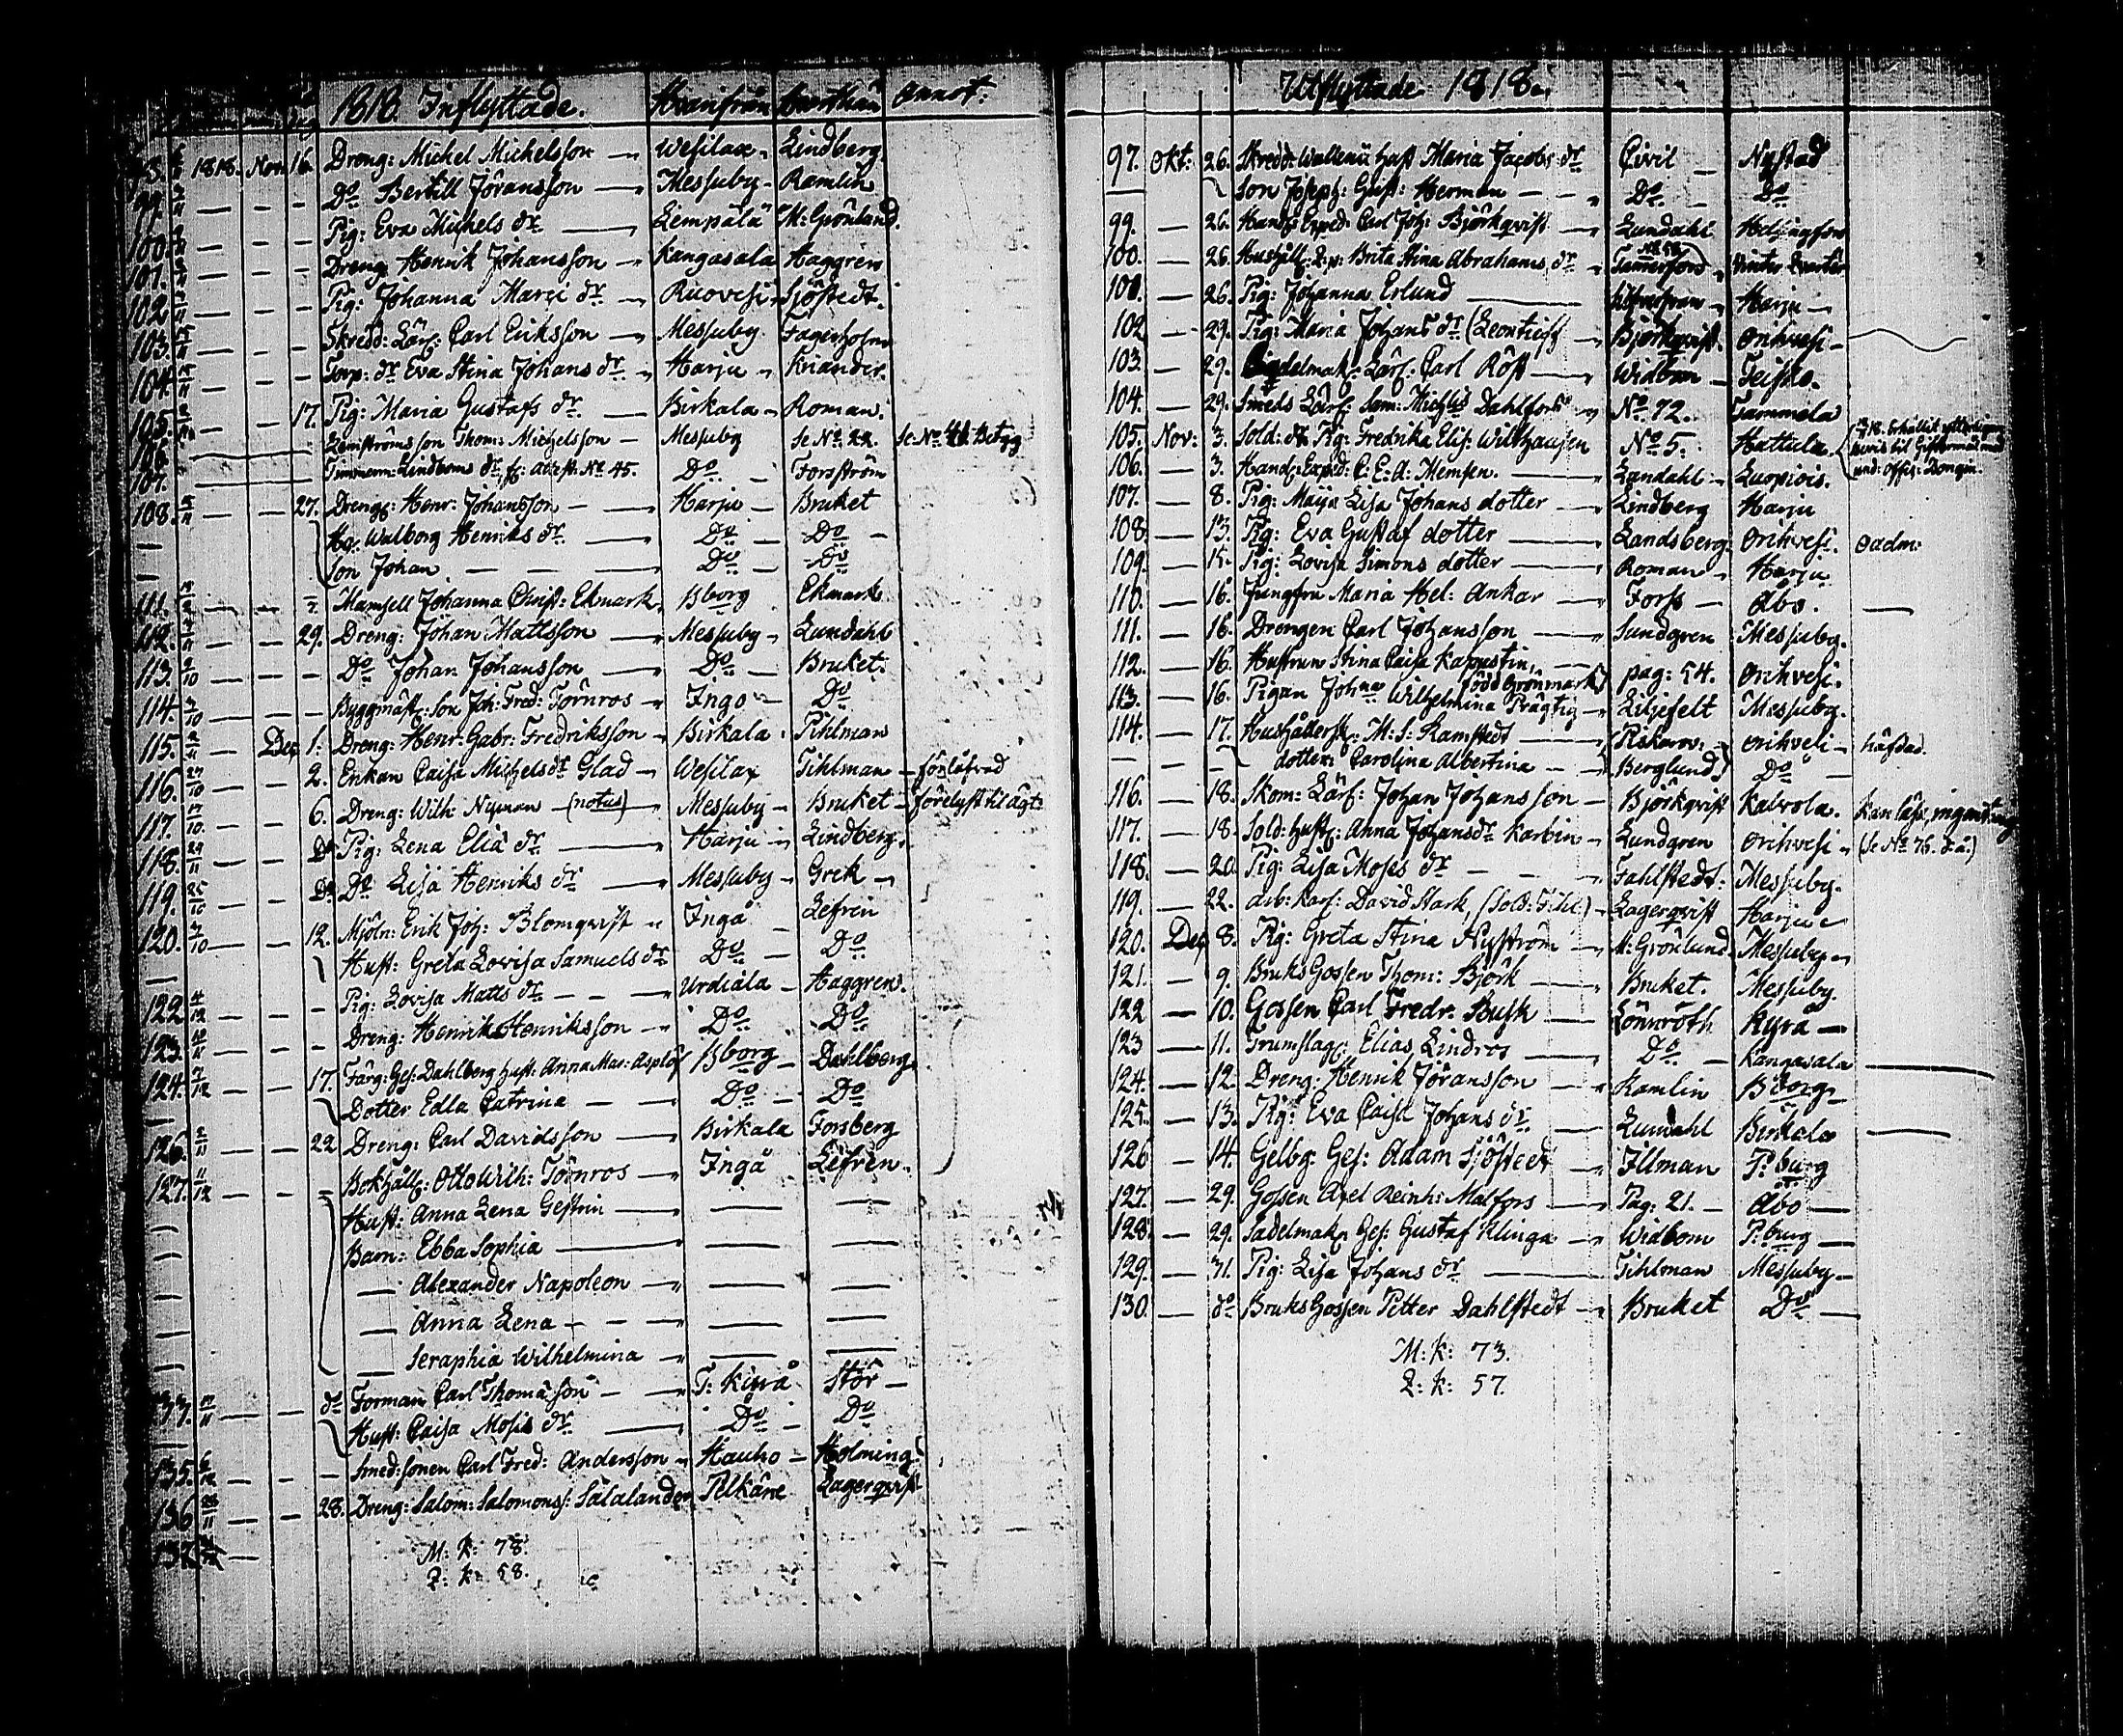 1818. Inflyttade. Hvarifrån Hvarthän Annot:
1818. Nov. 16. Dreng: Michel Michelsson — Wesilax, Lindberg
99. — Do Bertill Jöransson — Messuby — Ramlin
100. — Pig: Eva Michels dr — Lempälä M: Grönlund.
101. — Dreng: Henrik Johansson — Kangasala Haggren
102. — Pig: Johanna dr — Ruovesi Sjöstedt.
103. — Skredd: Lärl: Carl Eriksson — Messuby Fagerholm
104. — Torp: dr Eva Stina Johans dr — Harju — Kriander.
105. — 17. Pig: Maria Gustafs dr — Birkala — Roman.
106. — son Thom: Michelsson — Messuby se No 22.
107. — Timmerm: Lindboms dr No 45. Do — Forsström
108. — 27. Drengs Henr: Johansson — Harju — Bruket
— Walborg Henriks dr — Do — Do —
— Son Johan — Do — Do
111. — Mamsell Johanna Christ: Ekmark Bborg Ekmark.
112. — 29. Dreng: Johan Mattsson — Messuby — Lundahl
113. — Do Johan Johansson — Do — Bruket.
114. — Byggmäst: Son Joh: Fred: Törnros — Ingo — Do
115. — Dec 1. Dreng: Henr: Gabr: Fredriksson — Birkala. Pihlman
116. — 2. Enkan Caisa Michelsdr Glad — Wesilax Tihlman —
117. — 6. Dreng: Wilh: Nyman — (notus) — Messuby — Bruket —
118. — Do Pig: Lena Eliä dr — Harju — Lindberg.
119. — Do Do Lisa Henriks dr — Messuby — Grek —
120. — 12. Mjöln: Erik Joh: Blomqvist — Ingå Lefrin
— Hust: Greta Lovisa Samuels dr Do — Do
122. — Pig: Lovisa Matts dr — Urdiala — Haggren.
123. — Dreng: Henrik Henriksson — Do — Do
124. — 17. Färg: Ges: Dahlberg hust: Anna Mar: Asplöf Bborg — Dahlberg
— Dotter Edla Catrina — Do — Do
126. — 22 Dreng: Carl Davidsson — Birkala Forsberg
127. — Bokhåll: Otto Wilh: Törnros — Ingå Lefren.
— Hust: Anna Lena Gestrin — — —
— Barn: Ebba Sophia — — —
— — Alexander Napoleon — — —
— — Anna Lena — — —
— — Seraphia Wilhelmina — — —
133. — do Forman Carl Thomasson — Stör —
— Hust: Caisa Mosis dr — Do — Do
135. — Smed: sonen Carl Fred: Andersson — Hauho — Holming
136 — 28. Dreng: Salom: Salomons: Salalander Pelkäne Lagerqvist
M: K: 78.
Q: K: 58.
Utflyttade 1818.
97. Okt: 26. Skredd: Wallenii hust Maria Jacobs dr Civil — Nystad
— Son Joseph: Gust: Herman — Do — Do
99. — 26. Handl: Exped: Carl Joh: Björkqvist — Lundahl Helsingfors
100. — 26. Hushåll: Brita Stina Abrahams dr
101. — 26. Pig: Johanna Erlund — Harju —
102 — 29. Pig: Maria Johans dr (Leontieff — Björkqvist. Orihvesi —
103. — 29. Carl Röst — Widbom — Teisko.
104. — 29. Smeds Lärl: Sam: Michls Dahlfors — No 72. Tammela
105. Nov: 3. Sold: dr Pig: Fredrika Elis: Wilthausen No 5. Hattula.
106. — 3. Handl: Exped: C: E: A: Hemsen. — Landahl — Luopiois.
107. — 8. Pig: Maija Lisa Johans dotter — Lindberg Harju
108. — 13. Pig: Eva Gustaf dotter — Landsberg. Orihvesi. Oadm:
109. — 15. Pig: Lovisa Simons dotter — Roman — Harju
110. — 16. Jungfru Maria Hel: Ankar — Forss — Åbo. —
111. — 16. Drengen Carl Johansson — Sundgren Messuby.
112. — 16. Hustrun Stina Caisa Kapustin, — pag: 54. Orihvesi.
(född Grönmark)
113. — 16. Pigan Johna Wilhelmina Prägtig — Liljefelt Messuby.
114. — 17. Hushållersk: M: S: Ramstedt — Piskarov: — Orihvesi — häfdad
— dotter: Carolina Albertina — Berglund Do —
116. — 18. Skom: Lärl: Johan Johansson — Björkqvist Kalvola. Kan läsa,
117. — 18. Sold: hust: Anna Johansdr Karbin — Lundgren Orihvesi — (Se No 76. d: å.)
118. — 20. Pig: Lisa Moses dr — Fahlstedt: Messuby.
119. — 22. Arb: Karl: David Stark, (Sold: Tihl.) — Lagerqvist Harju
120. Dec 8. Pig: Greta Stina Nyström — M: Grönlund. Messuby —
121. — 9. Bruks Gossen Thom: Björk — Bruket. Messuby.
122 — 10. Gossen Carl Fredr. Busk — Lönnroth Kyrå —
123 — 11. Trumslag: Elias Lindros — Do — Kangasala
124. — 12. Dreng: Henrik Jöransson — Ramlin Bborg —
125. — 13. Pig: Eva Caisa Johans dr — Lundahl Birkala —
126 — 14. Gelbg: Ges: Adam Sjöstedt — Illman P:burg
127. — 29. Gossen Axel Reinh: Malfors — Pag: 21. — Åbo —
128. — 29. Sadelmak: Ges: Gustaf Klinga — Widbom P:burg —
129. — 31. Pig: Lisa Johans dr — Tihlman Messuby —
130. — do Bruks Gossen Petter Dahlstedt — Bruket Do —
M: K: 73.
Q: K: 57.